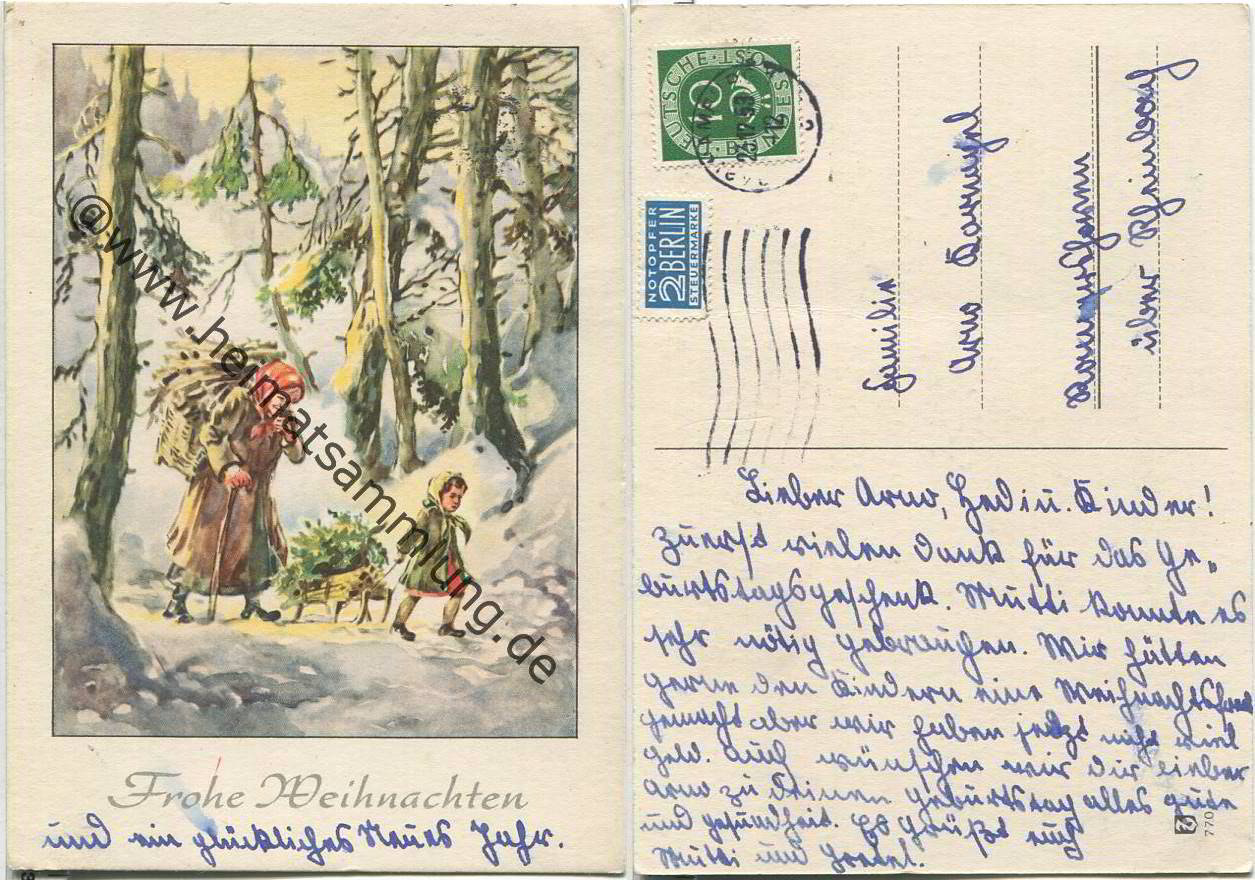 @www.heimatsammlung.de
Frohe Weihnachten
und ein glückliches Neues Jahr.
DEUTSCHE BUNDESPOST
10
23.12.53
NOTOPFER
2 BERLIN
STEUERMARKE
Familie
Arno
über Rheinberg
Lieber Arno, Hedi u. Kinder!
Zuerst vielen Dank für das Ge-
burtstagsgeschenk. Mutti konnte es
sehr nötig gebrauchen. Wir hätten
gerne den Kindern eine Weihnachtsfreud
gemacht aber wir haben jetzt nicht viel
Geld. Auch wünschen wir dir lieber
Arno zu deinen Geburtstag alles gute
und gesundheit. Es grüßt euch
Mutti und Gretel.
770